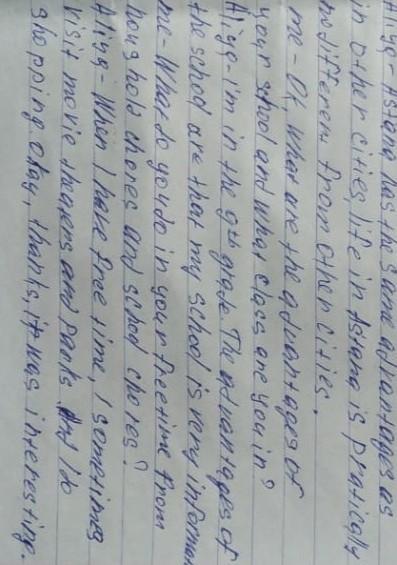 Aliya- Astana has the same advantages as
in other cities, life in Astana is pratically
no different from other cities.
me- Ok, What are the advantages of
your shool and what class are you in?
Aliya- im in the 9th grade. The advantages of
the school are that my school is very informa
me- What do you do in your free time from
household chores and school chores?
Aliya- When I have free time, I sometimes
visit movie theaters and parks. And I do
shopping. okay, thanks, it was interesting.